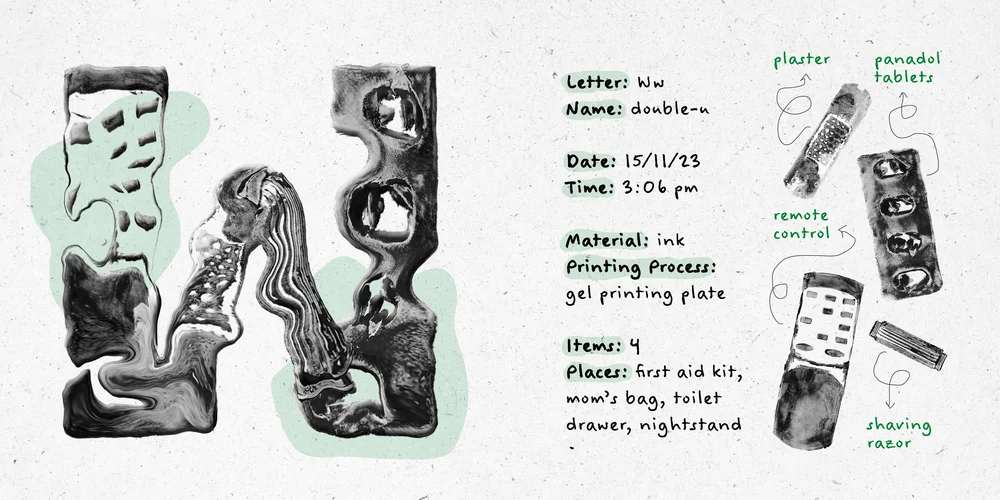 Letter: Ww
Name: double-u
Date: 15/11/23
Time: 3:06 pm
Material: ink
Printing Process:
gel printing plate
Items: 4
Places: first aid kit,
mom's bag, toilet
drawer, nightstand
.
plaster
panadol
tablets
remote
control
shaving
razor